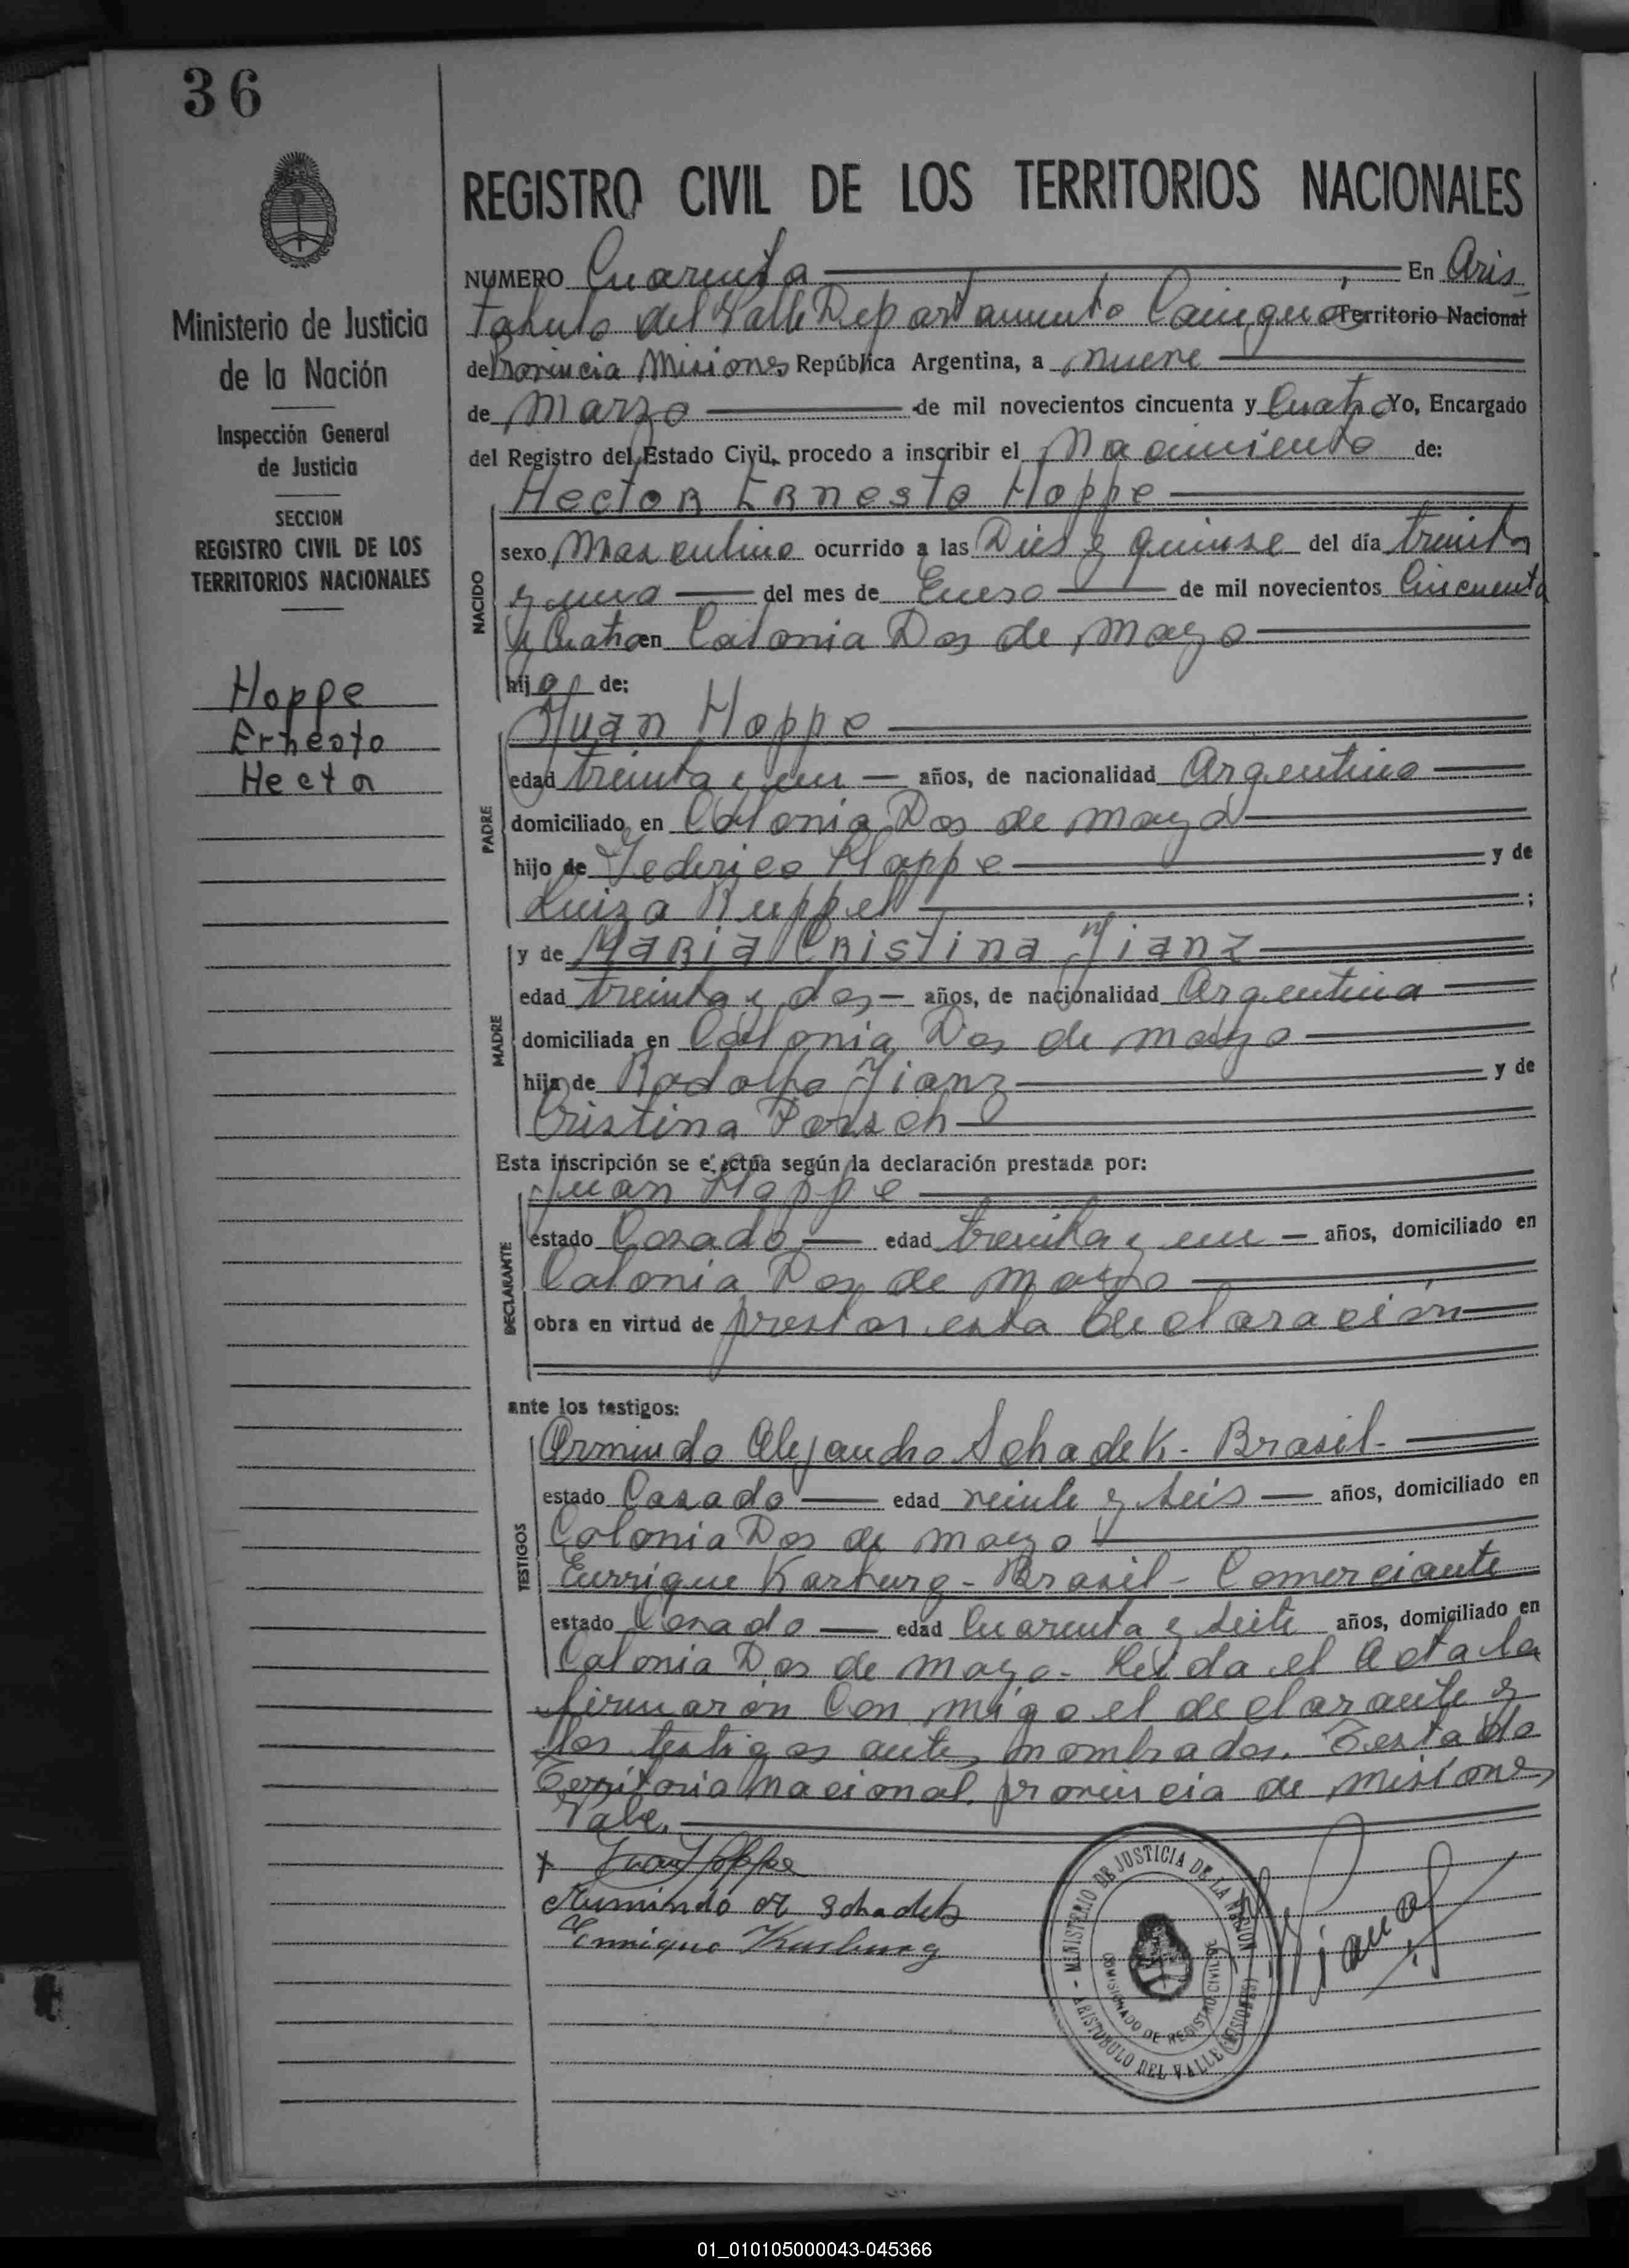 36
REGISTRO CIVIL DE LOS TERRITORIOS NACIONALES
Ministerio de Justicia
de la Nación
Inspección General
de Justicia
SECCION
REGISTRO CIVIL DE LOS
TERRITORIOS NACIONALES
Hoppe
Ernesto
Hector
NUMERO Cuarenta En Aris-
tobulo del Valle Departamento Cainguas Territorio Nacional
de Provincia Misiones República Argentina, a nueve
de Marzo de mil novecientos cincuenta y Cuatro Yo, Encargado
del Registro del Estado Civil, procedo a inscribir el Nacimiento de:
Hector Ernesto Hoppe
NACIDO
sexo Masculino ocurrido a las Dies y quinse del día treinta
y uno del mes de Enero de mil novecientos Cincuenta
y Cuatro en Colonia Dos de Mayo
hijo de:
Juan Hoppe
PADRE
edad treinta y un años, de nacionalidad Argentino
domiciliado en Colonia Dos de Mayo
hijo de Federico Hoppe y de
Luiza Ruppel ;
MADRE
y de Maria Cristina Jianz
edad treinta y dos años, de nacionalidad Argentina
domiciliada en Colonia Dos de Mayo
hija de Rodolfo Jianz y de
Cristina
Esta inscripción se efectúa según la declaración prestada por:
Juan Hoppe
DECLARANTE
estado Casado edad treinta y un años, domiciliado en
Colonia Dos de Mayo
obra en virtud de prestar esta declaración
ante los testigos:
TESTIGOS
Armindo Alejandro Schadek - Brasil -
estado Casado edad veinte y seis años, domiciliado en
Colonia Dos de Mayo
Enrrique Karburg - Brasil - Comerciante
estado Casado edad Cuarenta y siete años, domiciliado en
Colonia Dos de Mayo - Leida el Acta la
firmaron Con migo el declarante y
los testigos antes nombrados. Testado
Territorio Nacional. provincia de Misiones
Vale.
x Juan Hoppe
Armindo A Schadek
Enrrique Karburg
- MINISTERIO DE JUSTICIA DE LA NACION -
ARISTOBULO DEL VALLE (MISIONES)
COMISIONADO DE REGISTRO CIVIL
01_010105000043-045366